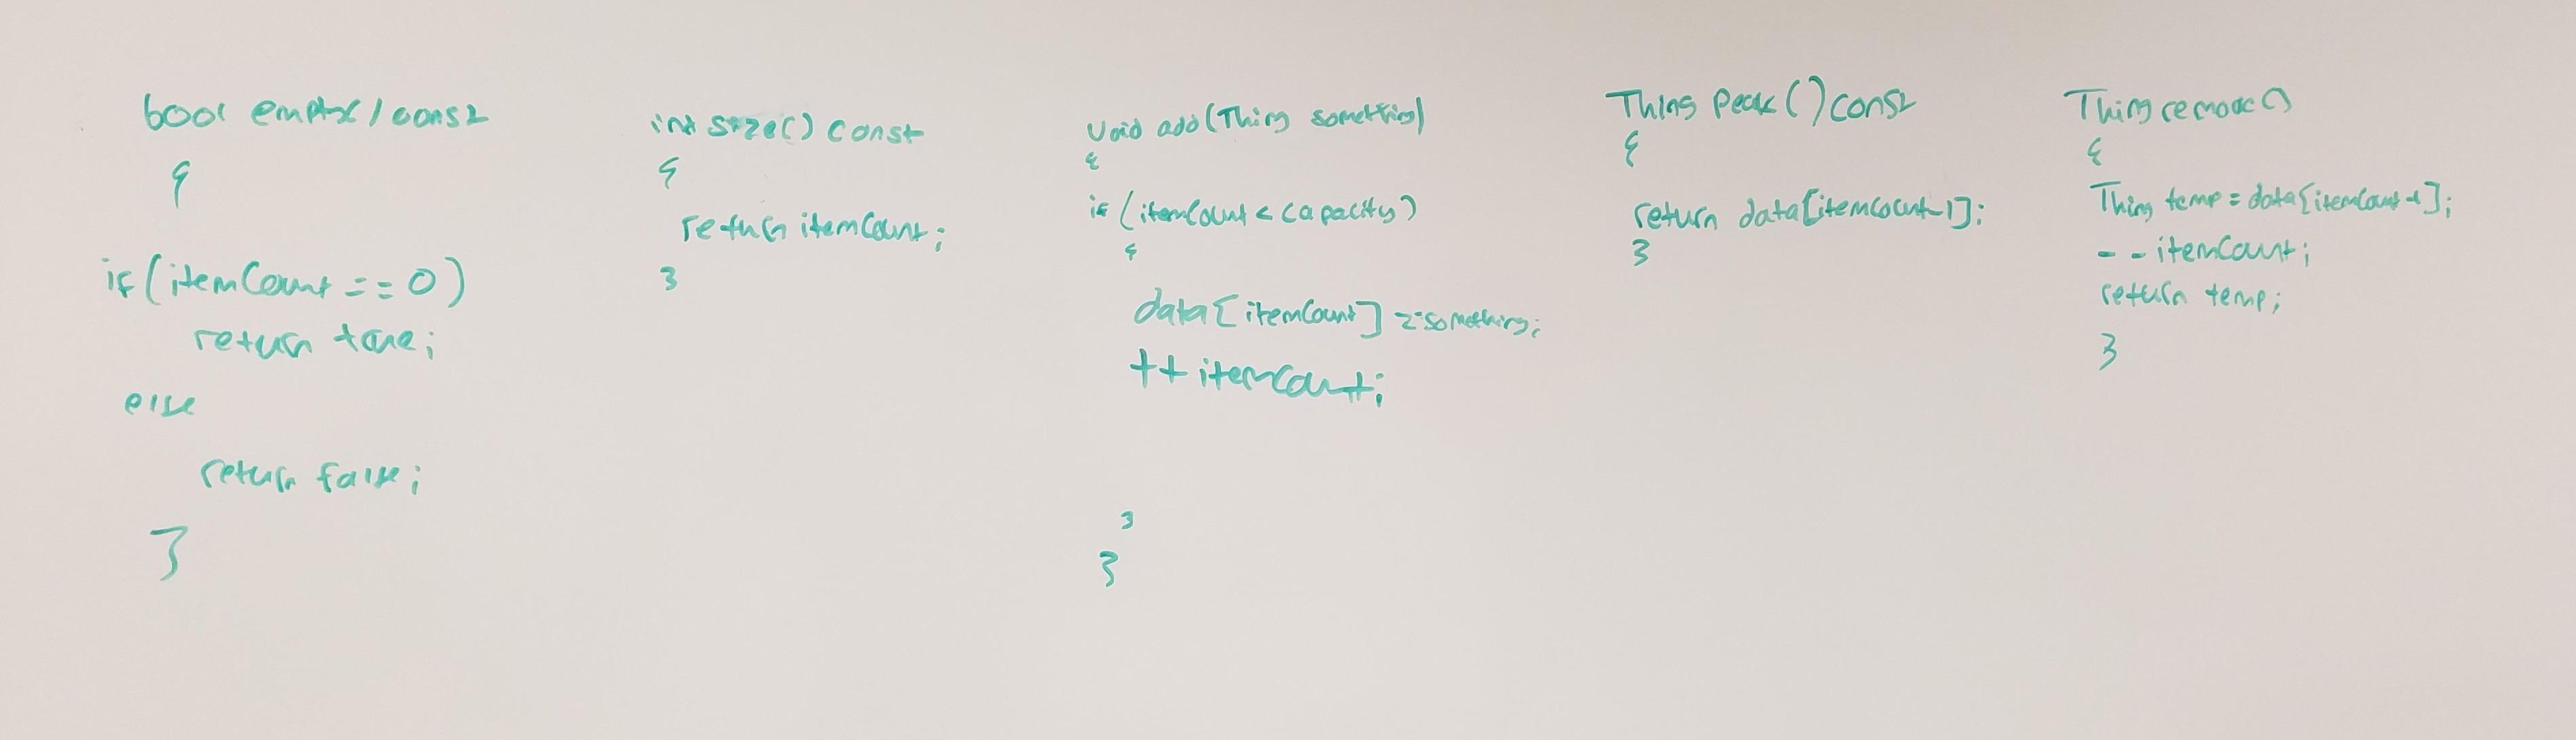 bool empty() const
{
if(itemCount == 0)
return true;
else
return false;
}
int size() const
{
return itemCount;
}
void add(Thing something)
{
if (itemCount < capacity)
{
data[itemCount] = something;
++itemCount;
}
}
Thing Peak() const
{
return data[itemCount-1];
}
Thing remove()
{
Thing temp = data[itemCount-1];
--itemCount;
return temp;
}